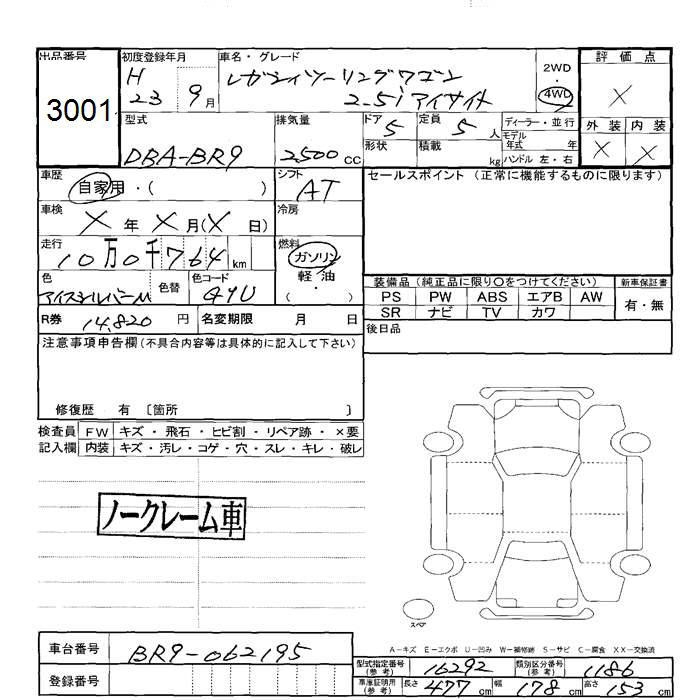 出品番号 初度登録年月 車名・グレード 評価点
3001 H23 9月 レガシィツーリングワゴン 2WD・4WD ×
2.5i アイサイト
型式 排気量 ドア 5 定員 5人 ディーラー・並行 外装 内装
DBA-BR9 2,500cc 形状 積載 kg モデル年式 年 × ×
ハンドル 左・右
車歴 自家用・( ) シフト AT セールスポイント (正常に機能するものに限ります)
車検 × 年 × 月(× 日) 冷房
走行 10万0千764km 燃料 ガソリン・軽油 ( )
色 アイスシルバーM 色替 色コード G1U
装備品 (純正品に限り○をつけてください) 新車保証書
PS PW ABS エアB AW 有・無
SR ナビ TV カワ
R券 14,820円 名変期限 月 日 後日品
注意事項申告欄 (不具合内容等は具体的に記入して下さい)
修復歴 有 〔箇所 〕
検査員 FW キズ・飛石・ヒビ割・リペア跡・×要
記入欄 内装 キズ・汚レ・コゲ・穴・スレ・キレ・破レ
ノークレーム車
スペア
A-キズ E-エクボ U-凹み W-補修跡 S-サビ C-腐食 XX-交換済
車台番号 BR9-062195 型式指定番号(参考) 16292 類別区分番号(参考) 1186
登録番号 車庫証明用(参考) 長さ 477cm 幅 178cm 高さ 153cm